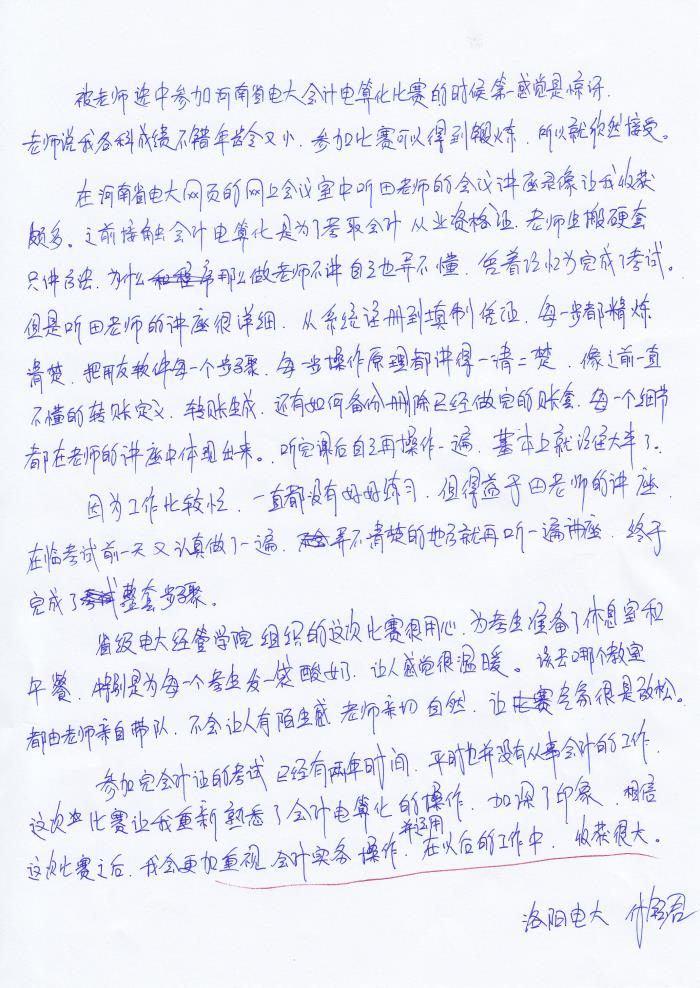 被老师选中参加河南省电大会计电算化比赛的时候第一感觉是惊讶.
老师说我各科成绩不错年龄又小.参加比赛可以得到锻炼.所以就欣然接受。
在河南省电大网页的网上会议室中听田老师的会议讲座录像让我收获
颇多。之前接触会计电算化是为了考取会计从业资格证.老师生搬硬套
只讲方法.为什么那么做老师不讲自己也弄不懂.凭着记忆完成了考试。
但是听田老师的讲座很详细.从系统注册到填制凭证.每一步都精炼
清楚.把用友软件每一个步骤.每一步操作原理都讲得一清二楚.像之前一直
不懂的转账定义.转账生成.还有如何备份删除已经做完的账套.每一个细节
都在老师的讲座中体现出来。听完课后自己再操作一遍.基本上就记住大半了。
因为工作比较忙.一直都没有好好练习.但得益于田老师的讲座.
在临考试前一天又认真做了一遍.弄不清楚的地方就再听一遍讲座.终于
完成了整套步骤。
省级电大经管学院组织的这次比赛很用心.为考生准备了休息室和
午餐.特别是为每一个考生发一袋酸奶.让人感觉很温暖。该去哪个教室
都由老师亲自带队.不会让人有陌生感 老师亲切自然.让大家很是放松。
参加完会计证的考试已经有两年时间.平时也并没有从事会计的工作.
这次比赛让我重新熟悉了会计电算化的操作.加深了印象.相信
这次比赛之后.我会更加重视会计实务操作.并运用在以后的工作中.收获很大。
洛阳电大